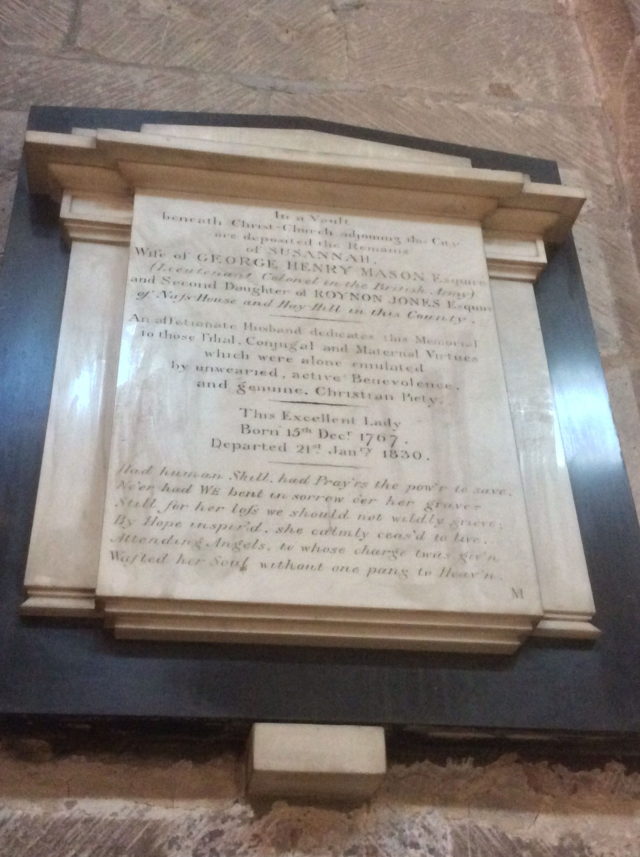 In a Vault
beneath Christ-Church adjoining this City
are deposited the Remains
of SUSANNAH,
Wife of GEORGE HENRY MASON Esquire
(Lieutenant Colonel in the British Army)
and Second Daughter of ROYNON JONES Esquire
of Nass House and Hay Hill in this County.
An affetionate Husband dedicates this Memorial
to those Filial, Conjugal and Maternal Virtues
which were alone emulated
by unwearied, active Benevolence,
and genuine, Christian Piety.
This Excellent Lady
Born 15th Decr 1767.
Departed 21st Janry 1830.
Had human Skill, had Pray'rs the pow'r to save,
Ne'er had WE bent in sorrow o'er her grave:
Still for her loss we should not wildly grieve;
By Hope inspir'd, she calmly ceas'd to live.
Attending Angels, to whose charge twas giv'n
Wafted her Soul without one pang to Heav'n.
M